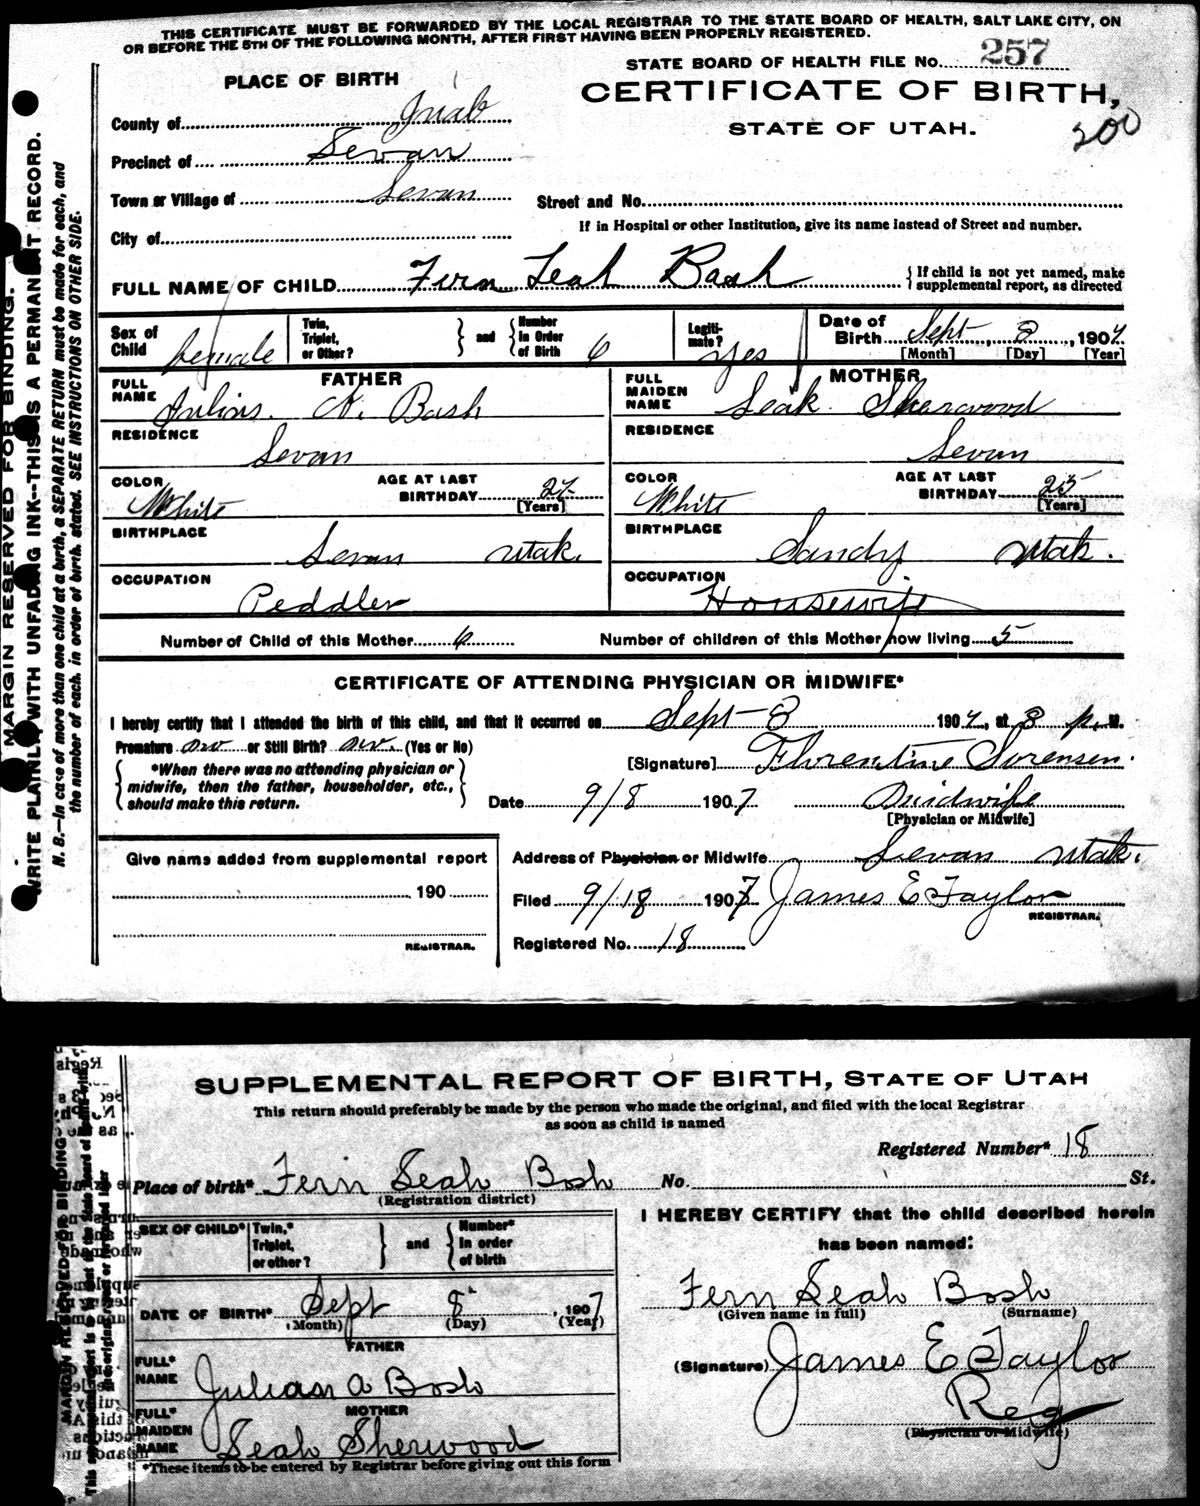 THIS CERTIFICATE MUST BE FORWARDED BY THE LOCAL REGISTRAR TO THE STATE BOARD OF HEALTH, SALT LAKE CITY, ON
OR BEFORE THE 5TH OF THE FOLLOWING MONTH, AFTER FIRST HAVING BEEN PROPERLY REGISTERED.
STATE BOARD OF HEALTH FILE No. 257
PLACE OF BIRTH
CERTIFICATE OF BIRTH,
STATE OF UTAH.
200
County of Juab
Precinct of Levan
Town or Village of Levan
Street and No.
If in Hospital or other Institution, give its name instead of Street and number.
City of
FULL NAME OF CHILD Fern Leah Bosh
{ If child is not yet named, make supplemental report, as directed
Sex of Child female
Twin, Triplet, or Other? } and { Number in Order of Birth 6
Legitimate? yes
Date of Birth Sept 8, 1907
[Month] [Day] [Year]
FATHER
FULL NAME Julius A. Bosh
RESIDENCE Levan
COLOR White
AGE AT LAST BIRTHDAY 27 [Years]
BIRTHPLACE Levan Utah.
OCCUPATION Peddler
MOTHER
FULL MAIDEN NAME Leah Sherwood
RESIDENCE Levan
COLOR White
AGE AT LAST BIRTHDAY 25 [Years]
BIRTHPLACE Sandy Utah.
OCCUPATION Housewife
Number of Child of this Mother 6
Number of children of this Mother now living 5
CERTIFICATE OF ATTENDING PHYSICIAN OR MIDWIFE*
I hereby certify that I attended the birth of this child, and that it occurred on Sept-8 1907, at 8 p. M.
Premature no or Still Birth? no. (Yes or No)
{ *When there was no attending physician or midwife, then the father, householder, etc., should make this return. }
[Signature] Florentine Sorensen.
Date 9/8 1907 Midwife
[Physician or Midwife]
Give name added from supplemental report
190
REGISTRAR.
Address of Physician or Midwife Levan Utah.
Filed 9/18 1907 James E Taylor
REGISTRAR.
Registered No. 18
MARGIN RESERVED FOR BINDING.
WRITE PLAINLY WITH UNFADING INK--THIS IS A PERMANENT RECORD.
N. B.—In case of more than one child at a birth, a SEPARATE RETURN must be made for each, and
the number of each, in order of birth, stated. SEE INSTRUCTIONS ON OTHER SIDE.
SUPPLEMENTAL REPORT OF BIRTH, STATE OF UTAH
This return should preferably be made by the person who made the original, and filed with the local Registrar
as soon as child is named
Registered Number* 18
Place of birth* Fern Leah Bosh No. St.
(Registration district)
SEX OF CHILD* Twin,* Triplet, or other? } and { Number* In order of birth
DATE OF BIRTH* Sept 8 , 1907
(Month) (Day) (Year)
FATHER
FULL* NAME Julian A Bosh
MOTHER
FULL* MAIDEN NAME Leah Sherwood
*These items to be entered by Registrar before giving out this form
I HEREBY CERTIFY that the child described herein
has been named:
Fern Leah Bosh
(Given name in full) (Surname)
(Signature) James E Taylor
Reg
(Physician or Midwife)
MARGIN RESERVED FOR BINDING